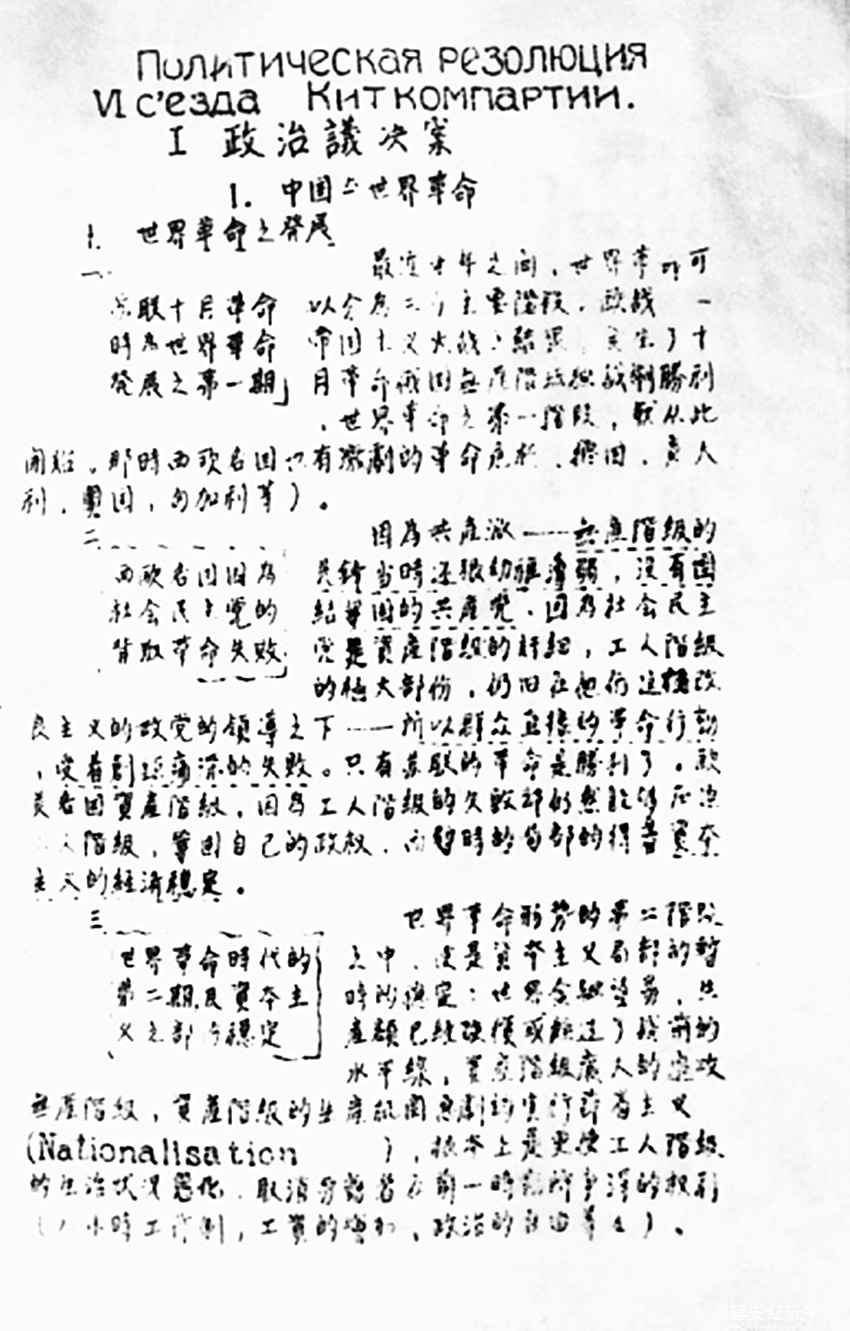 Политическая резолюция
VI с'езда Киткомпартии.
I 政治議决案
1. 中国与世界革命
1. 世界革命之發展
一 最近十年之间，世界革命可
苏联十月革命 以分为三个主要階段．欧战 一
時为世界革命 帝国主义大战之結果 产生了十
發展之第一期 月革命俄国無产階级 勝利
，世界革命之第一階段，就从此
開始，那時西欧各国也有激劇的革命危机．德国．意大
利．奧国，匈加利等）。
二 因为共产派——無産階级的
西欧各国因为 先鋒当時还狠幼稚薄弱，没有团
社会民主党的 結鞏固的共产党．因为社会民主
背叛革命失敗 党是資産階级的奸細，工人階级
的極大部份，仍旧在他们这種改
良主义的政党的領導之下——所以群众直接的革命行動
，受着創痛的失敗。只有苏联的革命是勝利了．欧
美各国資産階级，因为工人階级的失敗却仍然能够压迫
工人階级，鞏固自己的政权．而暫時的局部的得着資本
主义的經済穩定。
三 世界革命形势的第二階段
世界革命時代的 之中．便是資本主义局部的暫
第二期及資本主 時的穩定：世界金融貿易．生
义之部分穩定 産額已經恢復或超过了战前的
水平線，資産階级驚人的進攻
無産階级，資産階级的生産机関急劇的实行節省主义
(Nationalisation )，根本上是更使工人階级
的生活状况惡化．取消劳動者在前一時期所争得的权利
（八小時工作制，工資的增加．政治的自由等等）。